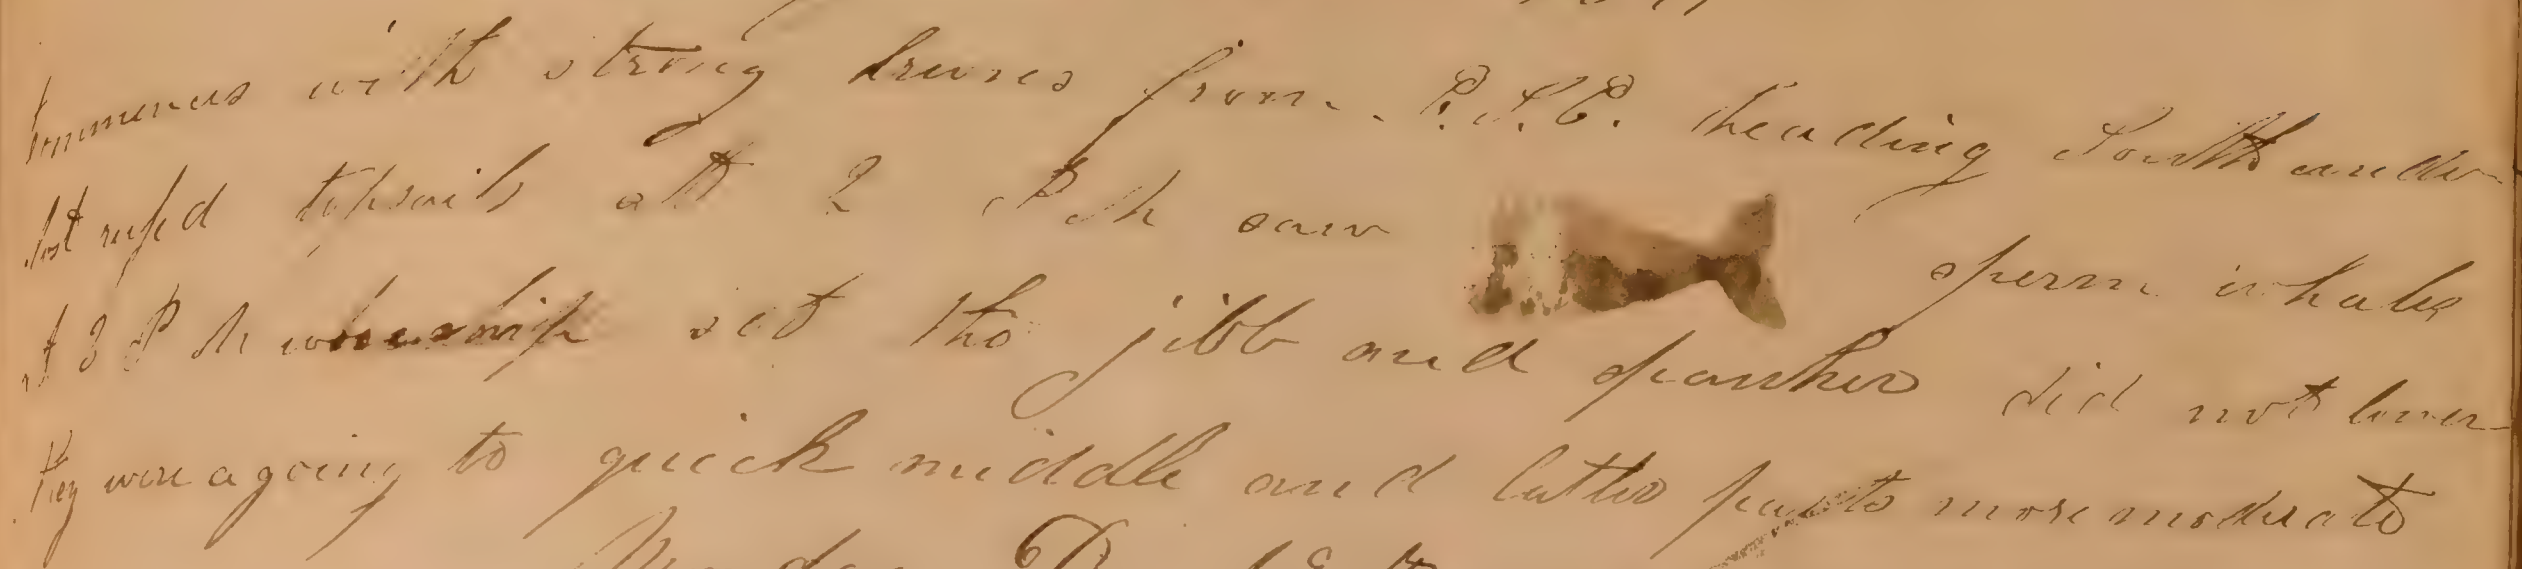 Commences with strong breeses from E.S.E. heading South under
topsails att 2 P M saw sperm whales
at 3 P M set the jibb and spanker did not lower
they were agoing to quick middle and latter parts more moderate